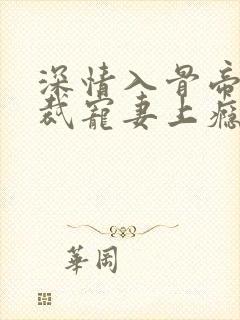 深情入骨帝
裁寵妻上癮
華岡